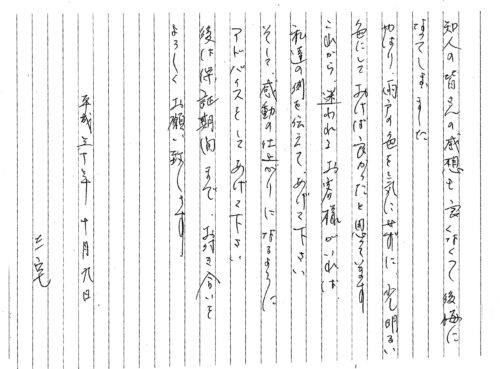 知人の皆さんの感想も良くなくて後悔に
なってしまいました
やはり、両方の色を気にせずに、少し明るい
色にしておけば良かったと思っています
これから、迷われるお客様がいれば
私達の例を伝えて、あげて下さい
そして、感動の仕上がりになるように
アドバイスをしてあげて下さい
後は保証期間まで、お付き合いを
よろしくお願い致します。
平成二十年 十月九日
三宅